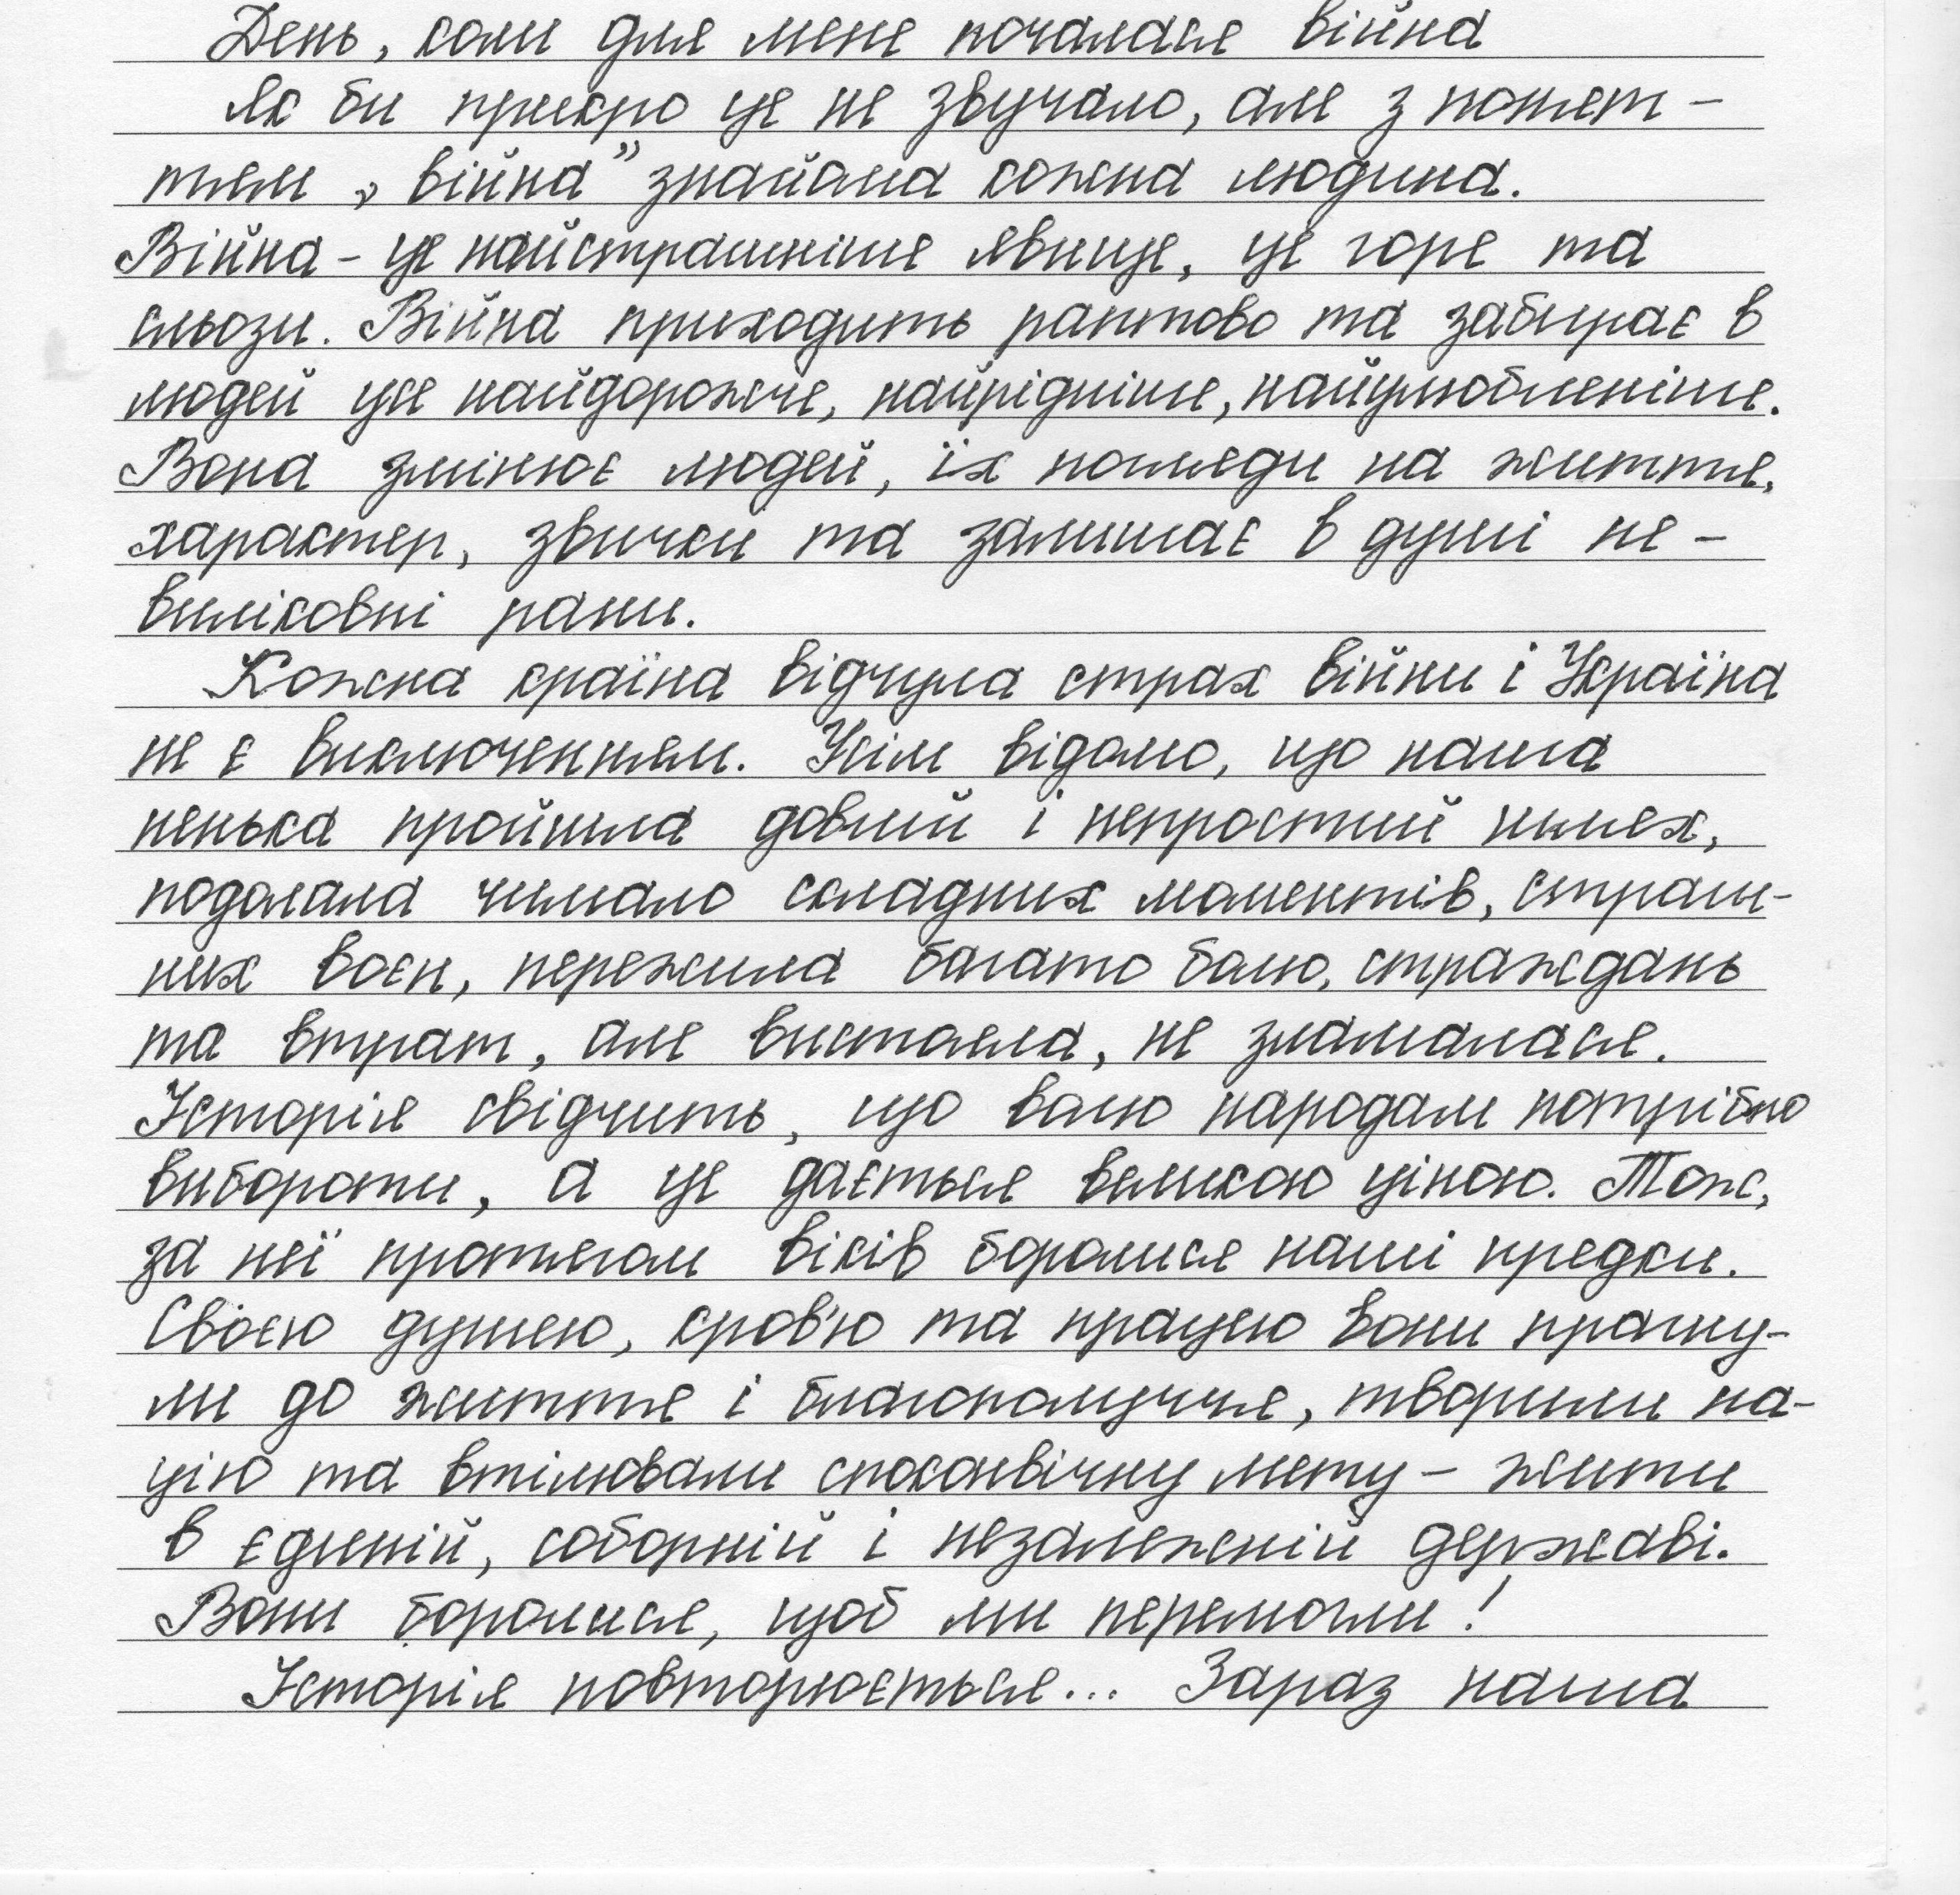 День, коли для мене почалася війна
Як би прикро це не звучало, але з понят-
тям „війна” знайома кожна людина.
Війна - це найстрашніше явище, це горе та
сльози. Війна приходить раптово та забирає в
людей усе найдорожче, найрідніше, найулюбленіше.
Вона змінює людей, їх погляди на життя,
характер, звички та залишає в душі не-
виліковні рани.
Кожна країна відчула страх війни і Україна
не є виключенням. Усім відомо, що наша
ненька пройшла довгий і непростий шлях,
подолала чимало складних моментів, страш-
них воєн, пережила багато болю, страждань
та втрат, але вистояла, не зламалася.
Історія свідчить, що волю народам потрібно
вибороти, а це дається великою ціною. Тож,
за неї протягом віків боролися наші предки.
Своєю душею, кров'ю та працею вони прагну-
ли до життя і благополуччя, творили на-
цію та втілювали споконвічну мету - жити
в єдиній, соборній і незалежній державі.
Вони боролися, щоб ми перемогли!
Історія повторюється... Зараз наша